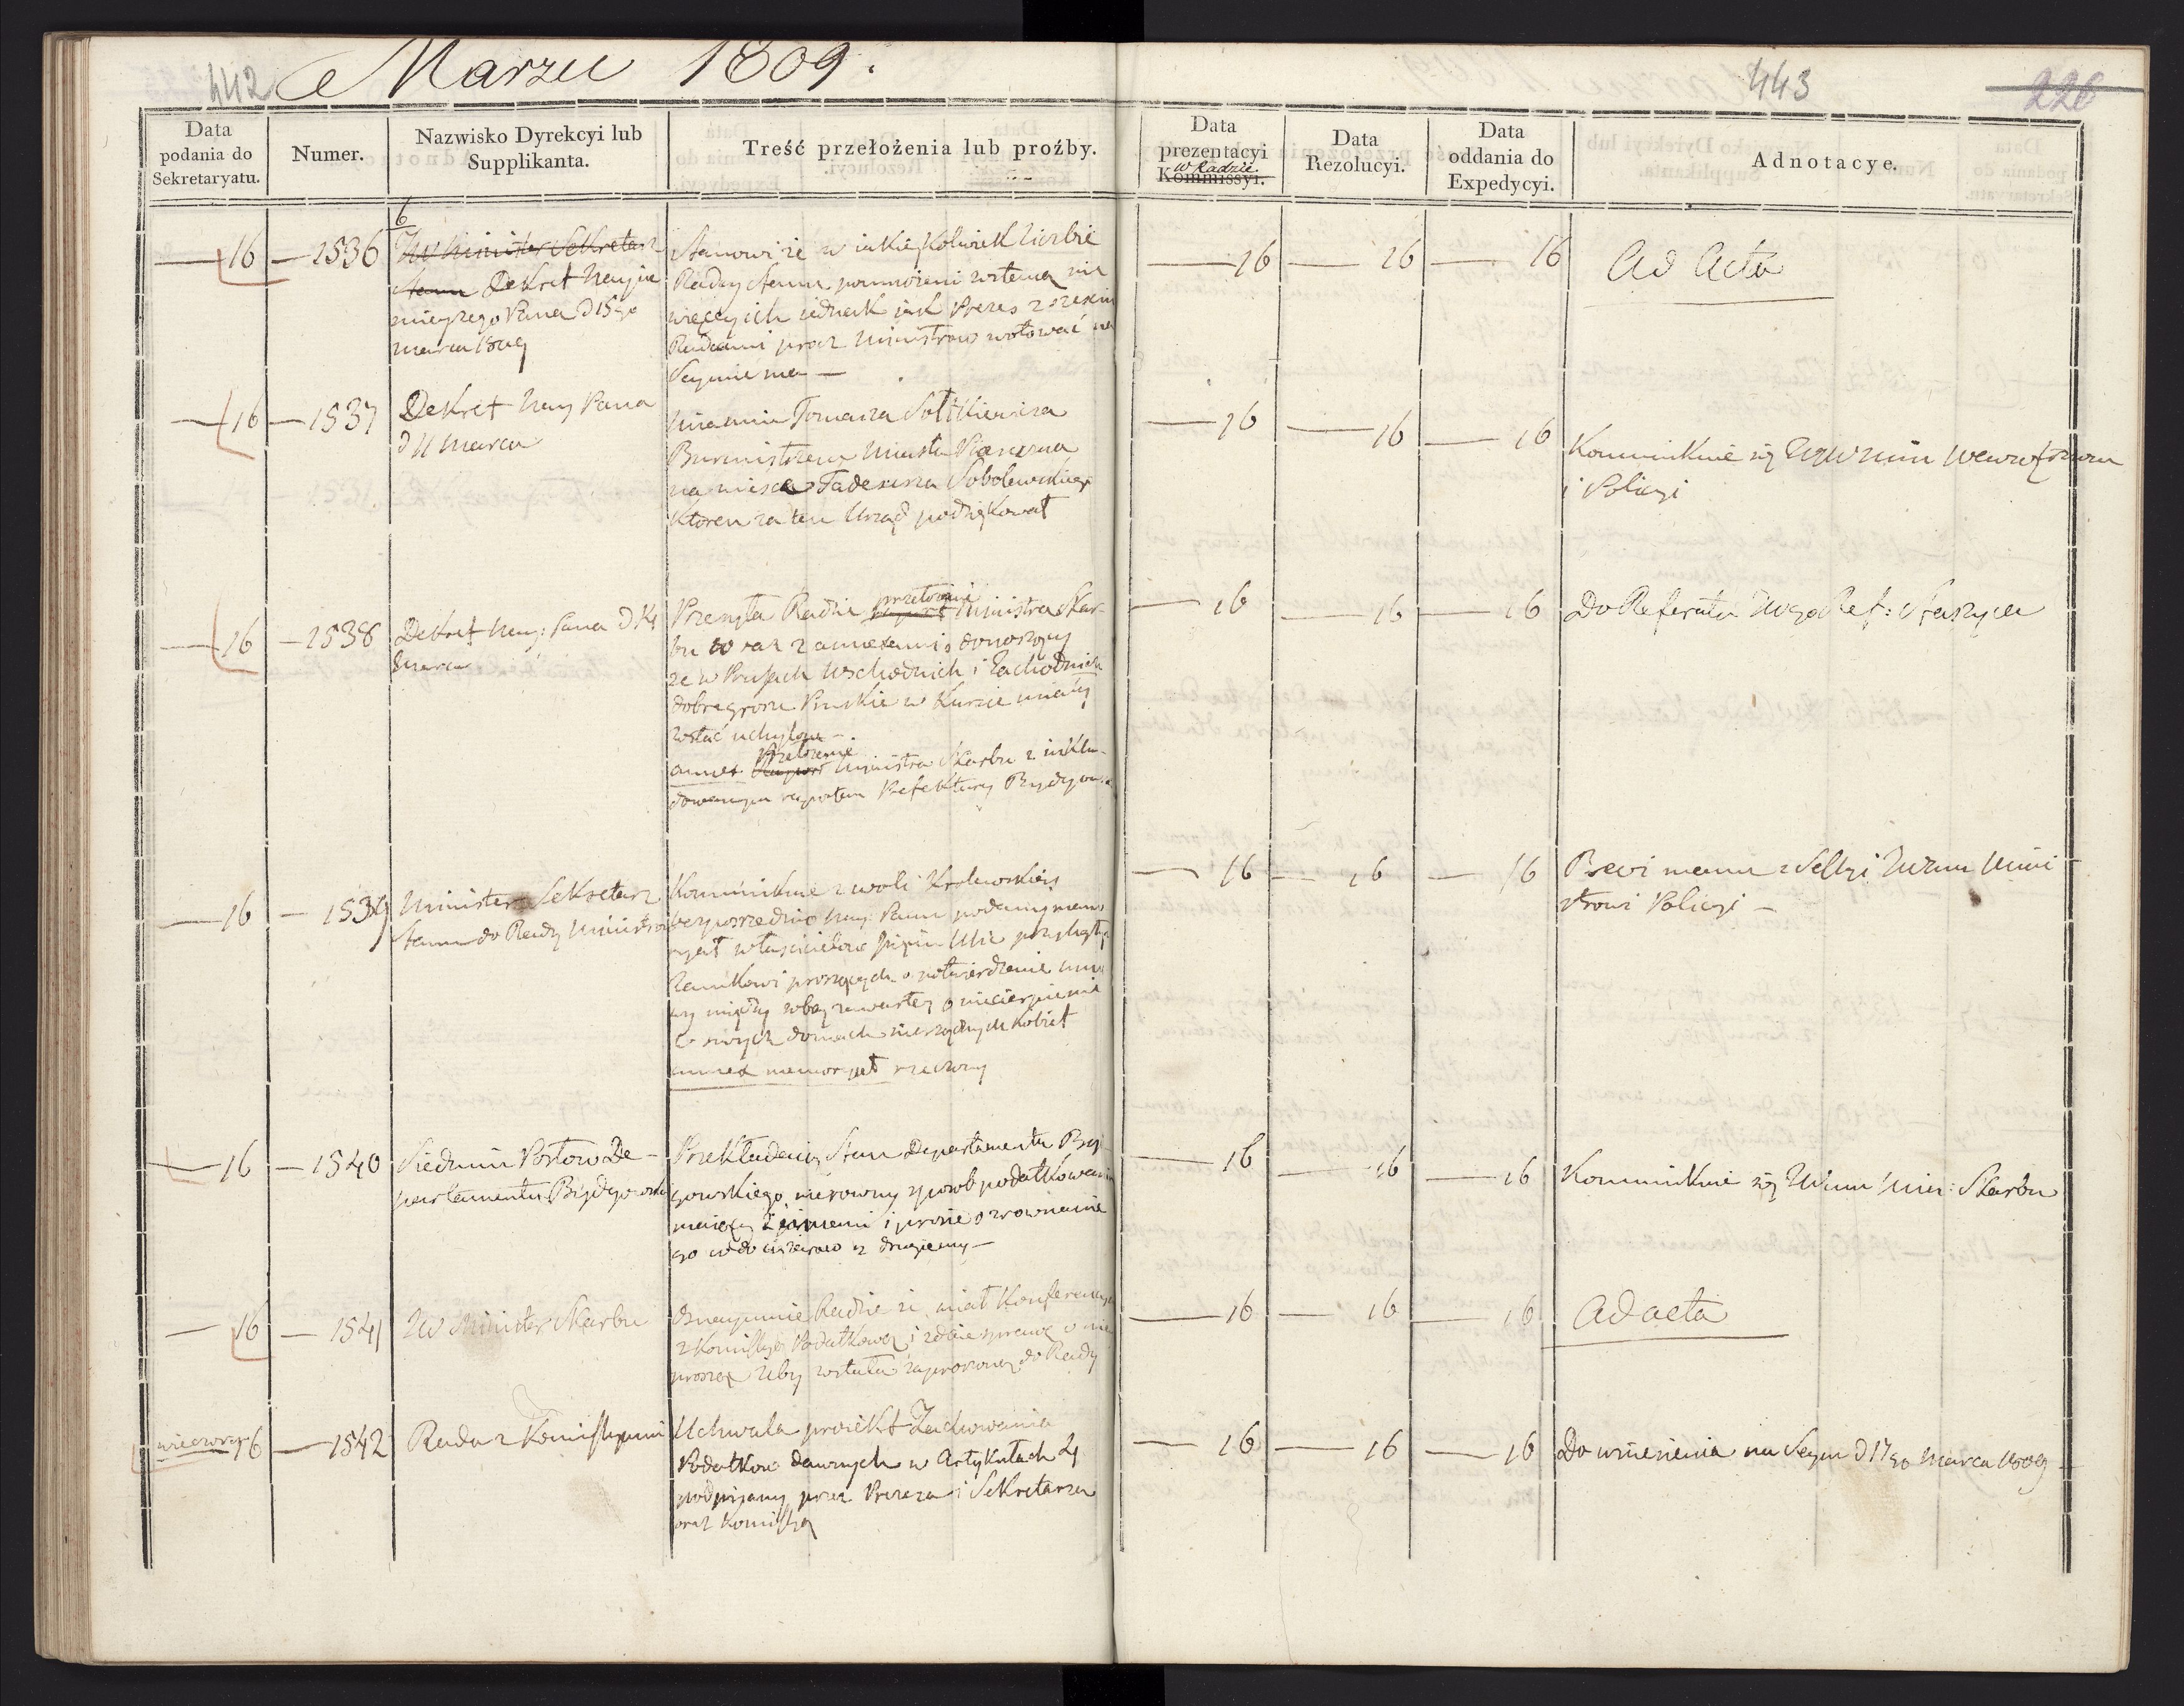 442 Marzec 1809.
443
226
Data podania do Sekretaryatu.
Numer.
Nazwisko Dyrekcyi lub Supplikanta.
Treść przełożenia lub proźby.
Data prezentacyi w Radzie Kommissyi.
Data Rezolucyi.
Data oddania do Expedycyi.
Adnotacye.
— 16 — 1536
JW Minister Sekretarz
Stanu Dekret Nayja
Pana d 15go
marca 1809
Stanowi że w iakiej kolwiek liczbie
Radcy Stanu pomnożeni zostaną nie
więcey ich iednak iak Prezes z sześciu
Radcami prócz Ministrow wotować na
Seymie ma —
— 16 — 16 — 16
Ad Acta
— 16 — 1537
Dekret Nay Pana
d 11 Marca
Mianuie Tomasza Sołtkiewicza
Burmistrzem Miasta
na miejsce Tadeusza Sobolewskiego
ktoren za ten Urząd podziękował
— 16 — 16 — 16
Kommunikuie się
i Policyi
— 16 — 1538
Dekret Nay: Pana D 14
Marca
Przesyła Radzie przełożenie Raport Ministra Skar-
bu wraz z annexami donoszący
że w Prusach Wschodnich i Zachodnich
dobre grosze Pruskie w Kursie miały
zostać uchylone —.
annex Przełożenie Raport Ministra Skarbu z inklu-
dowanym raportem Prefektury Bydgow.
— 16 — 16 — 16
Do Referatu JWgo Ref: Staszyca
— 16 — 1539
Minister Sekretarz
Stanu do Rady Ministrow
Kommunikuie z woli Krolewskiey
bezposrzednio Nay: Panu podany memo
ryał właścicielow przy Ulic przyległych
Zamkowi proszących o potwierdzenie umo
wy między sobą zawartey o niecierpienie
w swych domach nierządnych Kobiet
annex memoryał rzeczony
— 16 — 16 — 16
Brevi manu z Sessyi JWmu Mini
strowi Policyi —
— 16 — 1540
Siedmiu Posłow De-
partamentu Bydgowski
Przekładaią Stan Departamentu Byd-
gowskiego nierowny sposob podatkowania
maiący z innemi i prosi o zrownanie
go co do ciężarow z drugiemi —
— 16 — 16 — 16
Kommunikuie się JWmu Min: Skarbu
— 16 — 1541
JW Minister Skarbu
Oznaymuie Radzie iż miał Konferencyą
z Komissyą Podatkową i zdaie sprawę o niey
prosząc żeby została zaproszoną do Rady
— 16 — 16 — 16
Ad acta
wieczorem 16 — 1542
Rada z Komissyami
Uchwala proiekt Zachowania
Podatkow dawnych w Artykułach 4
podpisany przez Prezesa i Sekretarza
oraz Komissyą
— 16 — 16 — 16
Do wniesienia na Seym d 17go Marca 1809